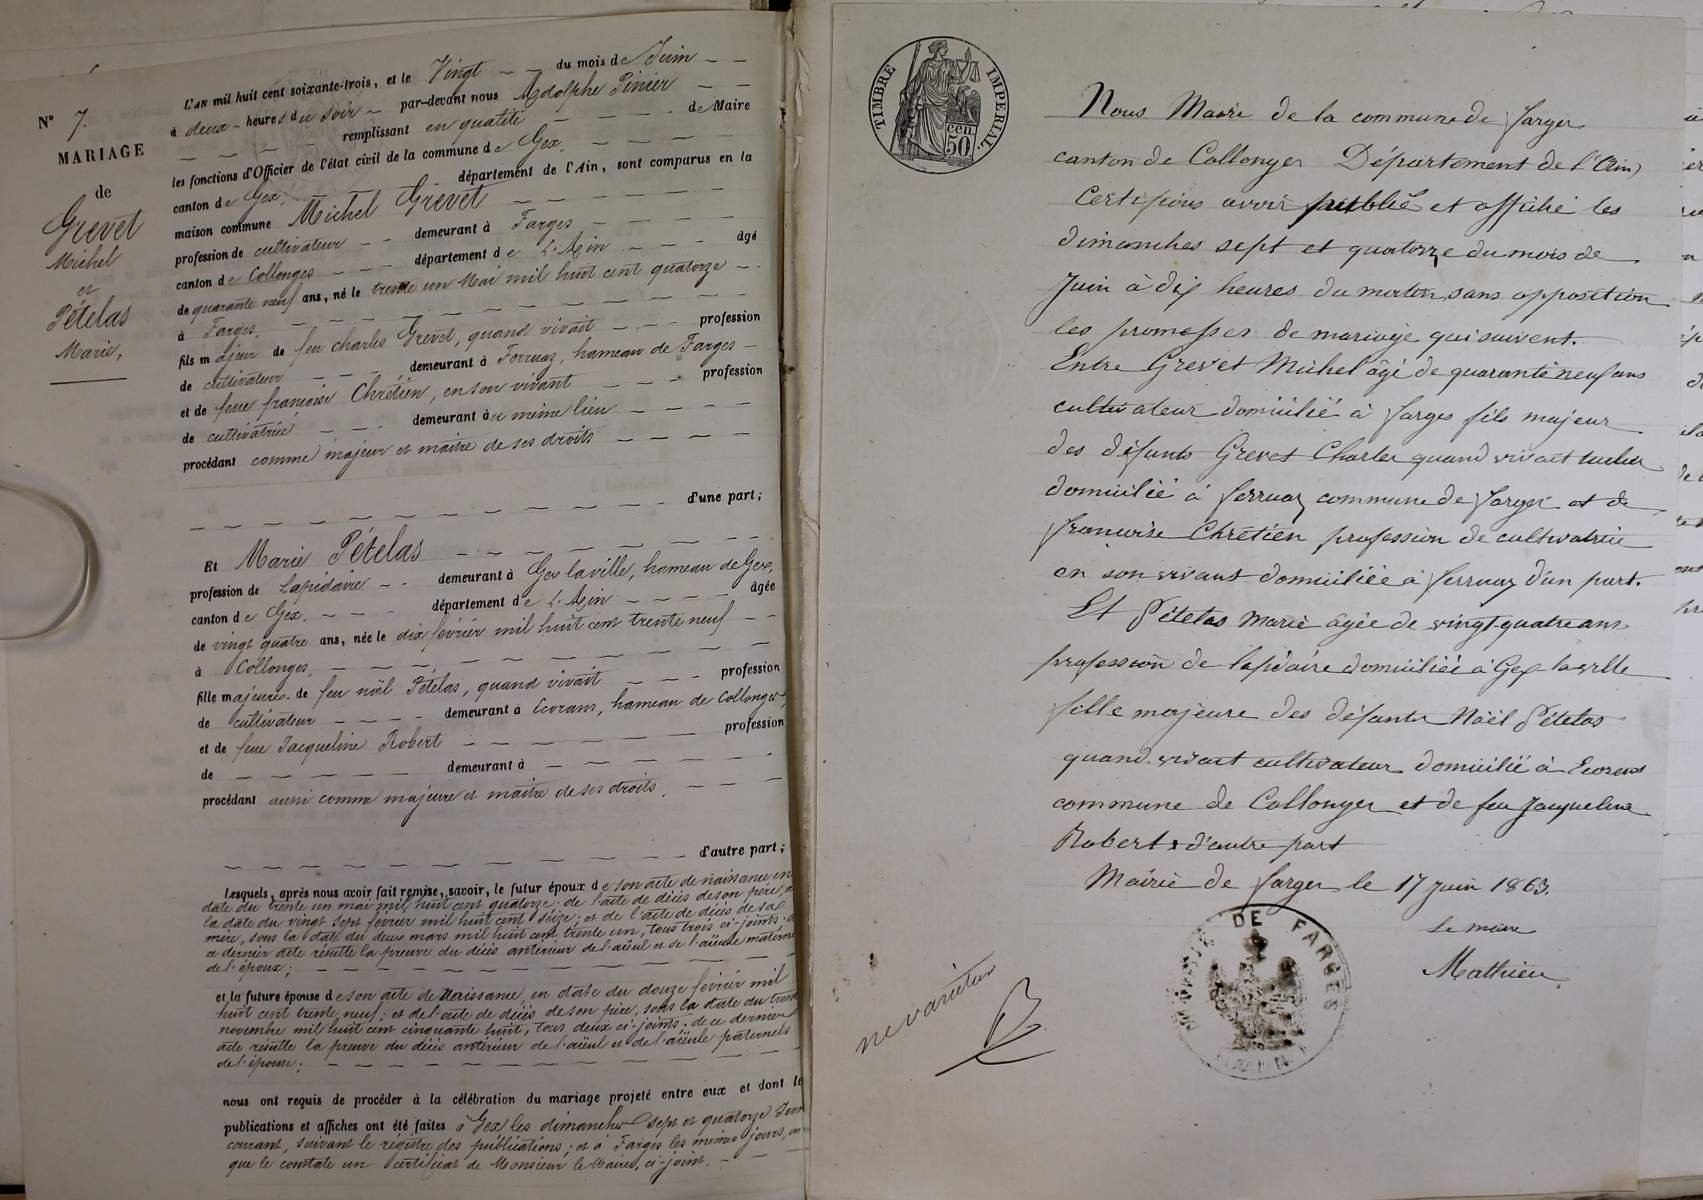 N° 7.
MARIAGE
de
Grevet
Michel
et
Pételas
Marie,
L'AN mil huit cent soixante-trois, et le Vingt du mois de Juin
à deux heures du soir par-devant nous Adolphe Pinier
remplissant en qualité de Maire
les fonctions d'Officier de l'état civil de la commune de Gex,
canton de Gex, département de l'Ain, sont comparus en la
maison commune Michel Grevet
profession de cultivateur demeurant à Farges
canton de Collonges département de L'Ain âgé
de quarante neuf ans, né le trente un Mai mil huit cent quatorze
à Farges,
fils majeur de feu charles Grevet, quand vivait profession
de cultivateur demeurant à Ferruaz, hameau de Farges
et de feue françoise Chrétien, en son vivant profession
de cultivatrice demeurant au même lieu
procédant comme majeur et maitre de ses droits
d'une part;
Et Marie Pételas
profession de Lapidaire demeurant à Gex la ville, hameau de Gex,
canton de Gex. département de L'Ain âgée
de vingt quatre ans, née le dix février mil huit cent trente neuf
à Collonges,
fille majeure de feu nöel Pételas, quand vivait profession
de cultivateur demeurant à Ecorans, hameau de Collonges,
et de feue Jacqueline Robert profession
de demeurant à
procédant aussi comme majeure et maitre de ses droits.
d'autre part;
Lesquels, après nous avoir fait remise, savoir, le futur époux de son acte de naissance en
date du trente un mai mil huit cent quatorze; de l'acte de décès de son père, à
la date du vingt sept février mil huit cent seize; et de l'acte de décès de sa
mère, sous la date du deux mars mil huit cent trente un, tous trois ci-joints;
ce dernier acte résulte la preuve du décès antérieur de l'aïeul et de l'aïeule maternels
de l'époux;
et la future épouse de son acte de Naissance, en date du douze février mil
huit cent trente neuf; et de l'acte de décès de son père, sous la date du trente
novembre mil huit cent cinquante huit, tous deux ci-joints; de ce dernier
acte résulte la preuve du décès antérieur de l'aïeul et de l'aïeule paternels
de l'épouse;
nous ont requis de procéder à la célébration du mariage projeté entre eux et dont les
publications et affiches ont été faites à Gex les dimanches sept et quatorze Juin
courant, suivant le registre des publications; et à Farges les mêmes jours,
que le constate un certificat de Monsieur le Maire, ci-joint.
TIMBRE IMPERIAL
50 cen.
Nous Maire de la commune de Farges
canton de Collonges Département de l'Ain
Certifions avoir publié et affiché les
dimanches sept et quatorze du mois de
Juin à dix heures du matin, sans opposition
les promesses de mariage qui suivent.
Entre Grevet Michel âgé de quarante neuf ans
cultivateur domicilié à Farges fils majeur
des défunts Grevet Charles quand vivait
domicilié à Ferruaz commune de Farges et de
françoise Chrétien profession de cultivatrice
en son vivant domiciliée à Ferruaz d'un part.
Et Pételas Marie âgée de vingt quatre ans
profession de lapidaire domiciliée à Gex la ville
fille majeure des défunts Nöël Pételas
quand vivait cultivateur domicilié à Ecorans
commune de Collonges et de feu Jacqueline
Robert d'autre part
Mairie de Farges le 17 Juin 1863.
Le maire
Mathieu
MAIRIE DE FARGES
ne varietur